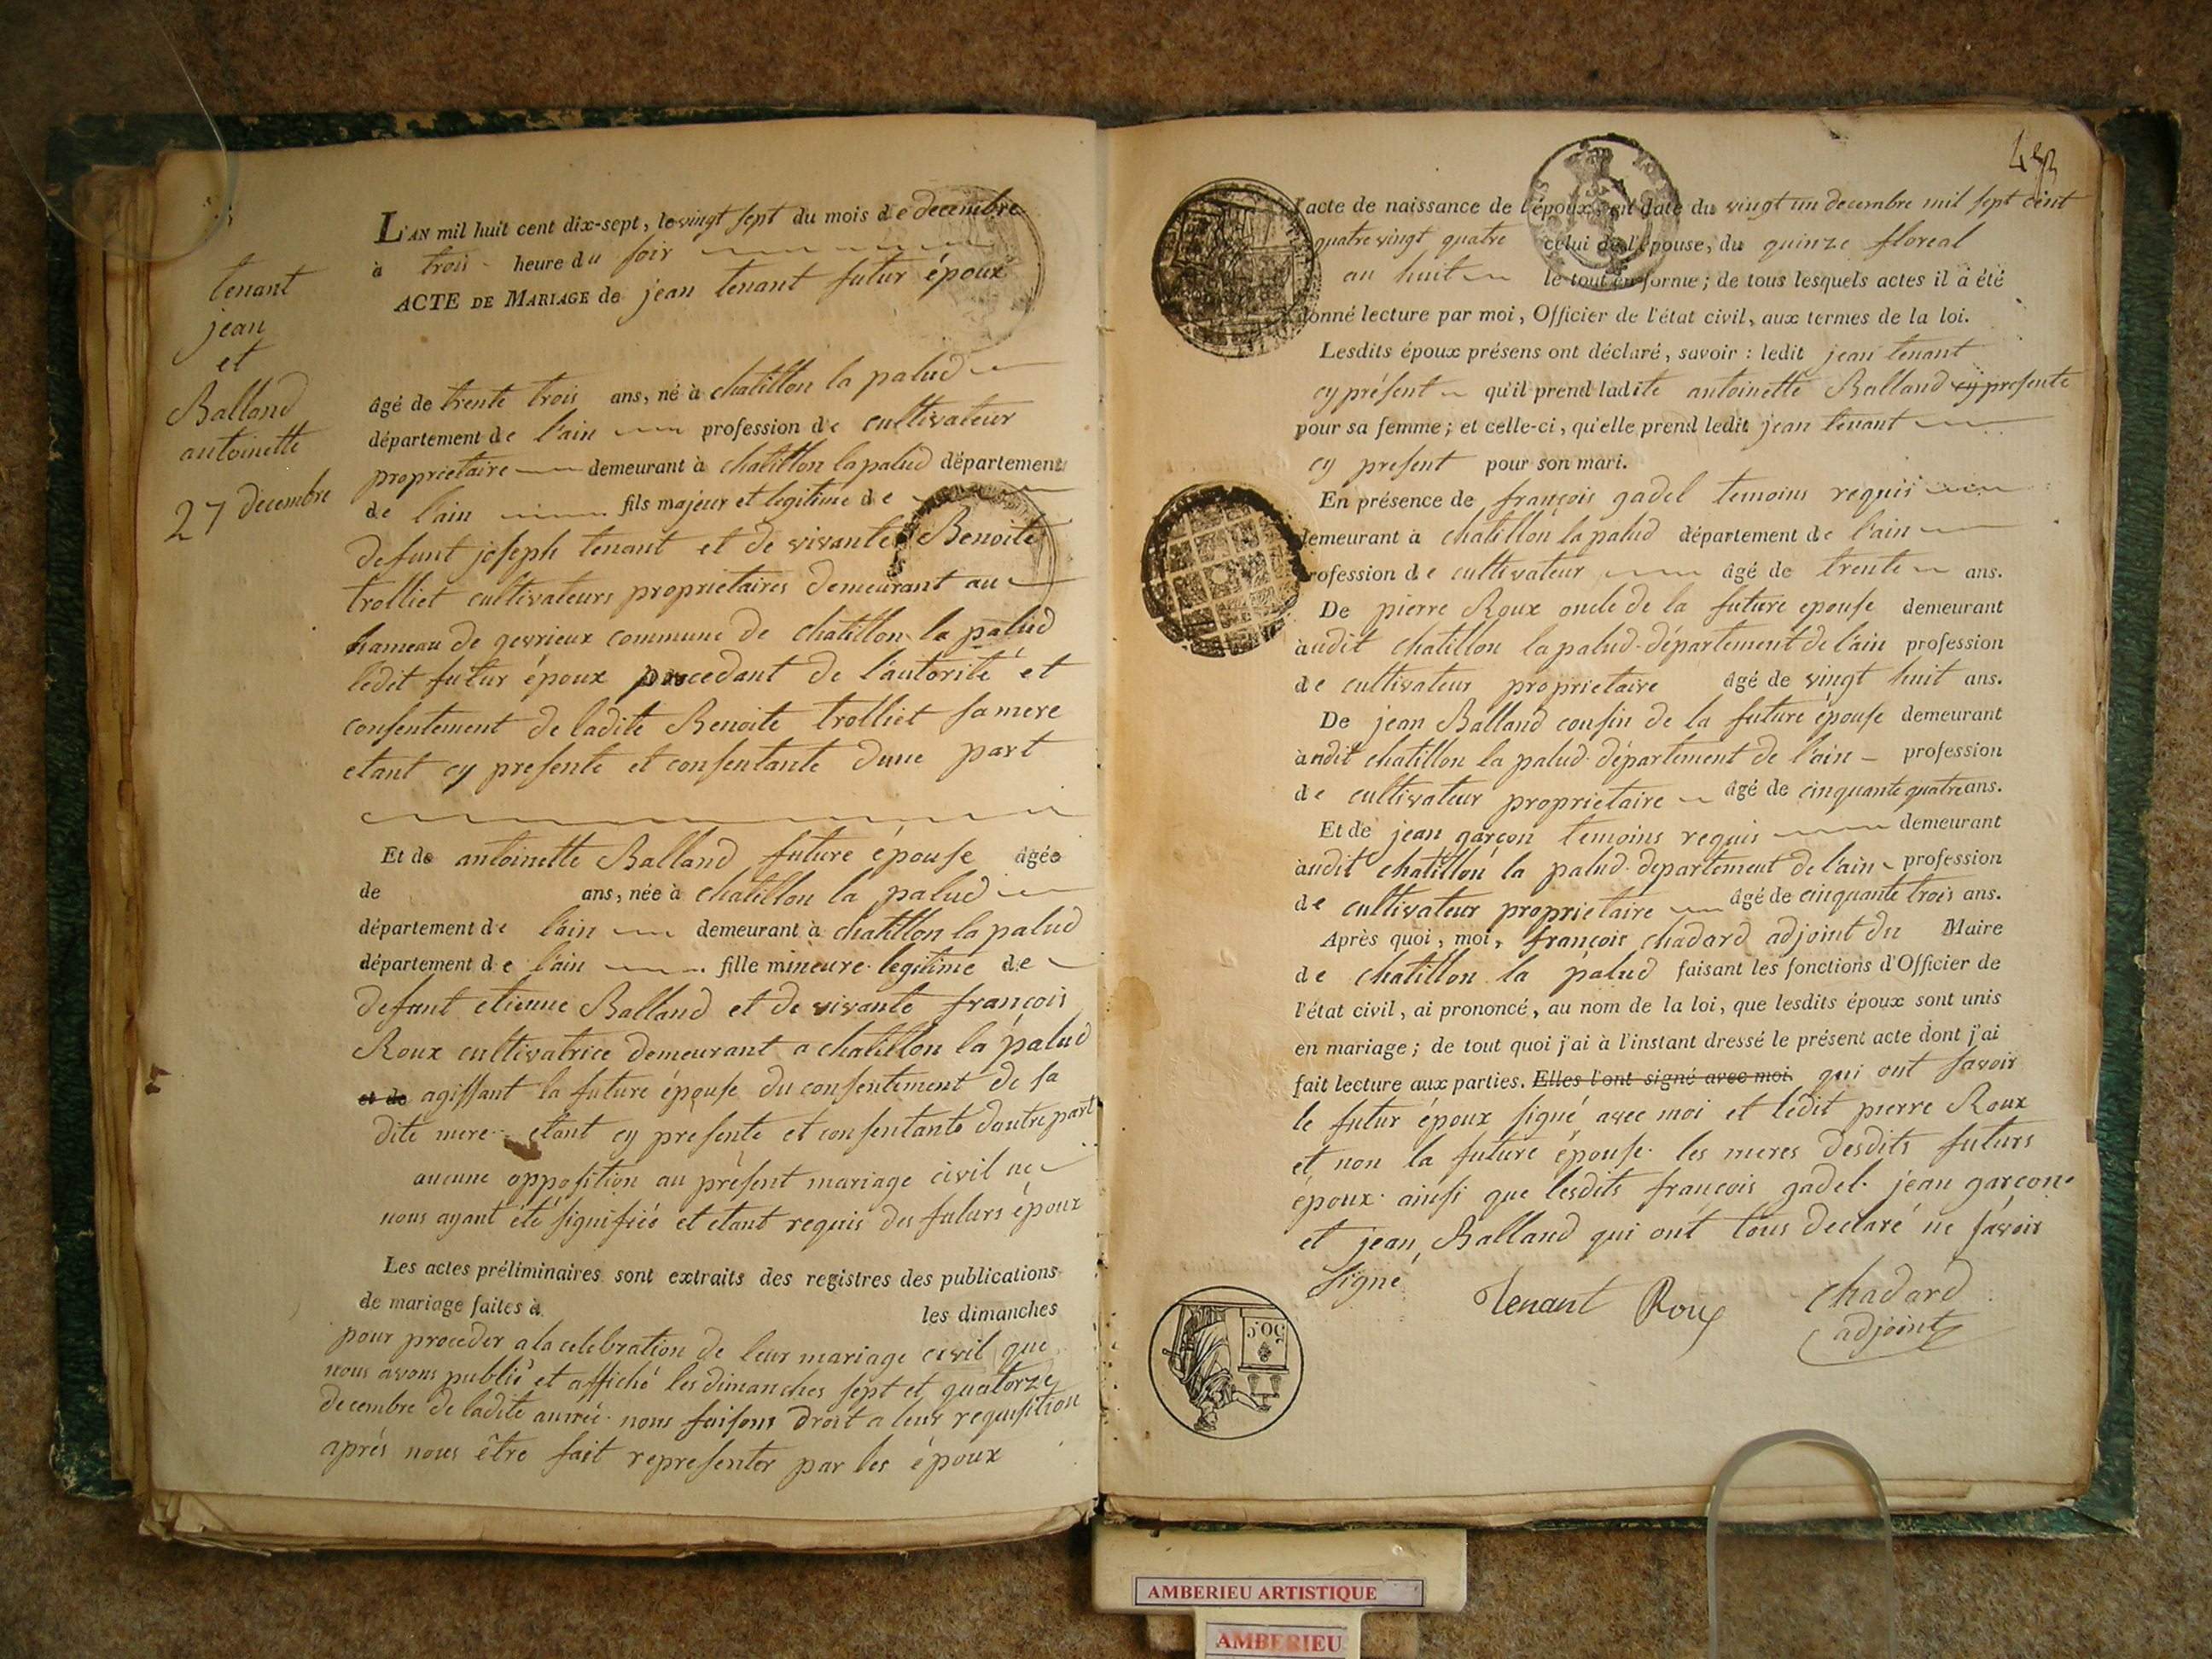 tenant
jean
et
Balland
antoinette
27 decembre
L'AN mil huit cent dix-sept, le vingt sept du mois de decembre
à trois heure du soir
ACTE DE MARIAGE de jean tenant futur époux
âgé de trente trois ans, né à chatillon la palud
département de l'ain profession de cultivateur
proprietaire demeurant à chatillon la palud département
de l'ain fils majeur et legitime de
defunt joseph tenant et de vivante Benoite
trolliet cultivateurs proprietaires demeurant au
hameau de gevrieux commune de chatillon la palud
ledit futur époux procedant de l'autorité et
consentement de ladite Benoite trolliet sa mere
etant cy presente et consentante dune part
Et de antoinette Balland future épouse âgée
de ans, née à chatillon la palud
département de l'ain demeurant à chatillon la palud
département de l'ain fille mineure legitime de
defunt etienne Balland et de vivante françois
Roux cultivatrice demeurant a chatillon la palud
et de agissant la future épouse du consentement de sa
dite mere etant cy presente et consentante dautre part
aucune opposition au présent mariage civil ne
nous ayant été signifiée et etant requis des futurs époux
Les actes préliminaires sont extraits des registres des publications
de mariage faites à les dimanches
pour proceder a la celebration de leur mariage civil que
nous avons publié et affiché les dimanches sept et quatorze
decembre de ladite année nous faisons droit a leur requisition
aprés nous être fait representer par les époux
l'acte de naissance de l'époux en date du vingt un decembre mil sept cent
quatre vingt quatre celui de l'épouse, du quinze floreal
an huit le tout en forme; de tous lesquels actes il a été
donné lecture par moi, Officier de l'état civil, aux termes de la loi.
Lesdits époux présens ont déclaré, savoir : ledit jean tenant
cy présent qu'il prend ladite antoinette Balland cy presente
pour sa femme; et celle-ci, qu'elle prend ledit jean tenant
cy present pour son mari.
En présence de françois gadel temoins requis
demeurant à chatillon la palud département de l'ain
profession de cultivateur âgé de trente ans.
De pierre Roux oncle de la future epouse demeurant
àudit chatillon la palud département de l'ain profession
de cultivateur proprietaire âgé de vingt huit ans.
De jean Balland cousin de la future épouse demeurant
àudit chatillon la palud département de l'ain profession
de cultivateur proprietaire âgé de cinquante quatre ans.
Et de jean garçon temoins requis demeurant
àudit chatillon la palud departement de l'ain profession
de cultivateur proprietaire âgé de cinquante trois ans.
Après quoi, moi, françois chadard adjoint du Maire
de chatillon la palud faisant les fonctions d'Officier de
l'état civil, ai prononcé, au nom de la loi, que lesdits époux sont unis
en mariage; de tout quoi j'ai à l'instant dressé le présent acte dont j'ai
fait lecture aux parties. Elles l'ont signé avec moi. qui ont savoir
le futur époux signé avec moi et ledit pierre Roux
et non la future épouse les meres desdits futurs
époux ainsi que lesdits françois gadel jean garçon
et jean Balland qui ont tous declaré ne savoir
signé
Tenant Roux chadard
adjoint
50 C.
AMBERIEU ARTISTIQUE
AMBERIEU